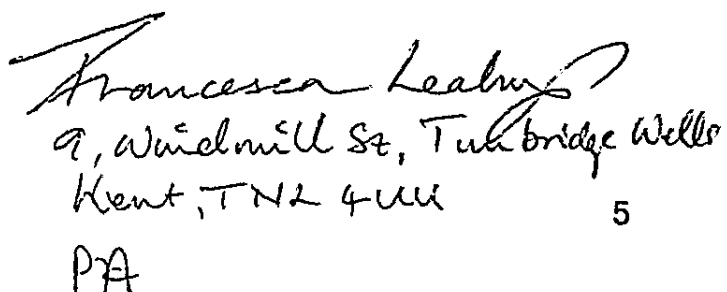 Francesca Leahy
9, Windmill St, Tunbridge Wells
Kent, TN2 4UU
5
PA